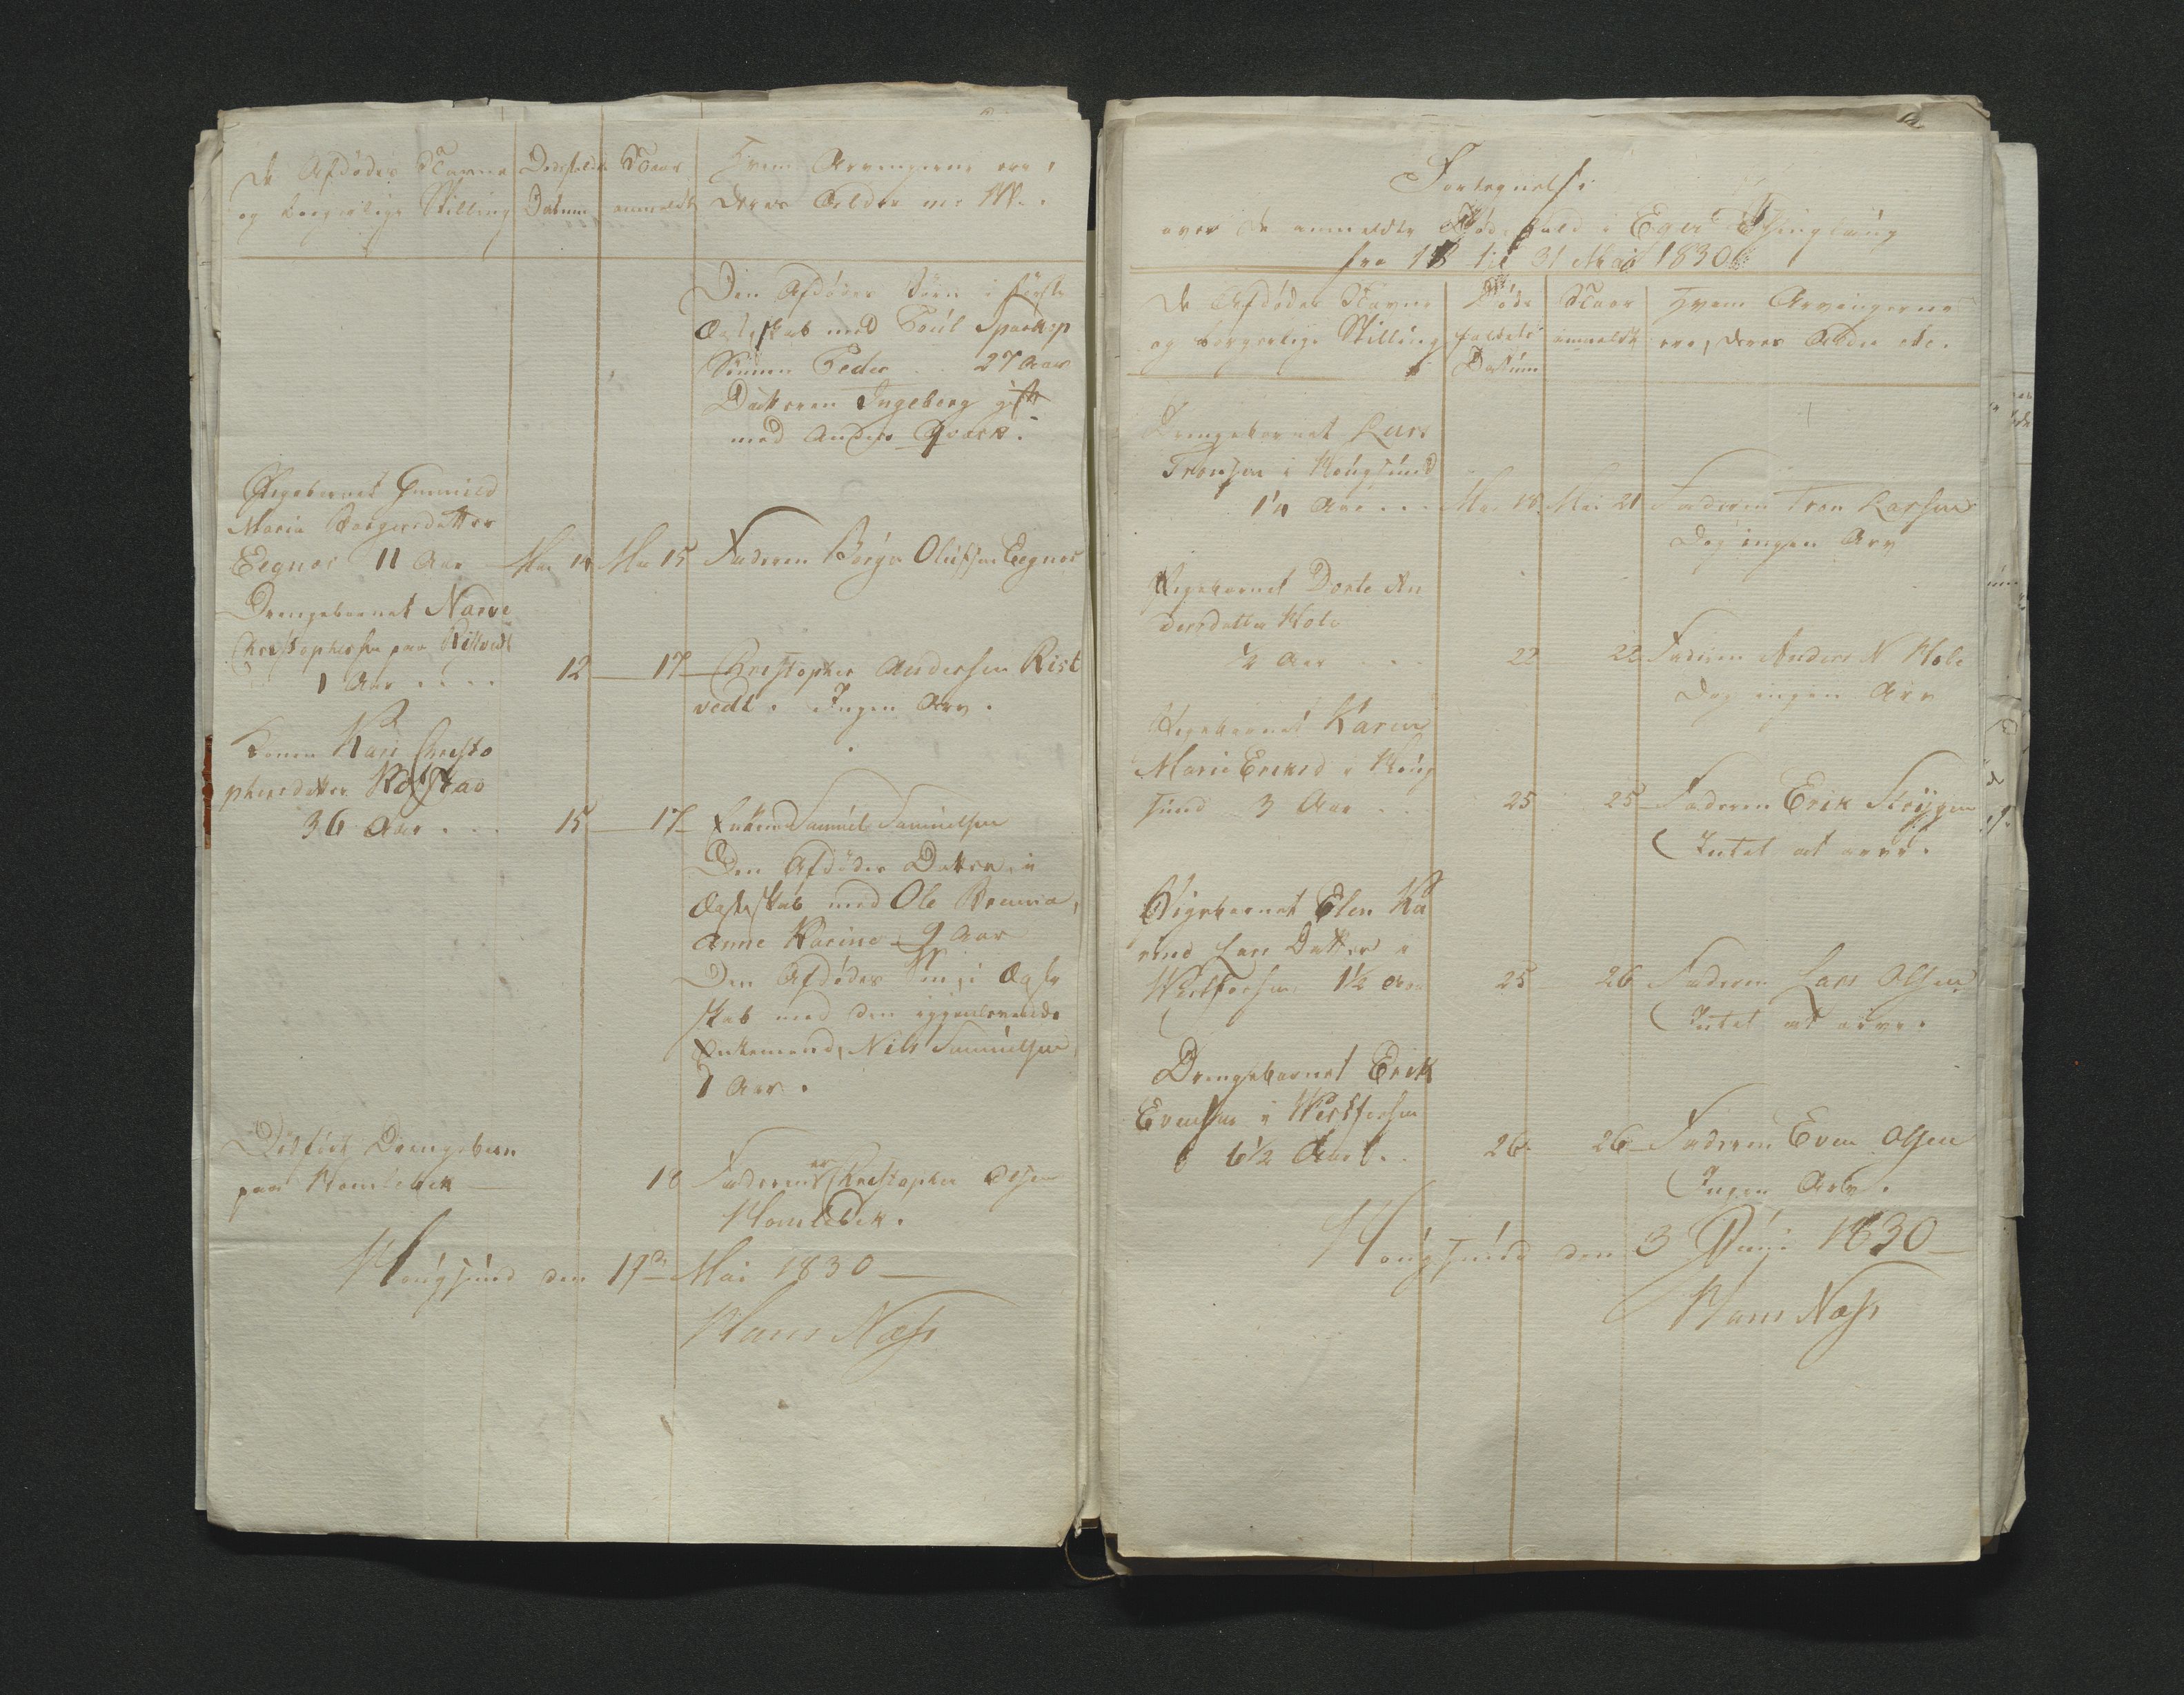 De Afdødes Navne
og borgerlige Stilling
Dødsfaldets
Datum
Naar
anmeldt
Hvem Arvingerne ere,
deres Alder m: M:
Den Afdødes Børn i første
Ægteskab med Poul Sparkop
Sønnen Peder . . 27 Aar
Datteren Ingeborg gift
med Anders Qværk.
Pigebarnet Gunnild
Maria Borgersdatter
Eegnes 11 Aar Mai 14 Mai 15 Faderen Børger Olufsen Eegnes
Drengebarnet Narve
Christophersen paa Ristvedt
1 Aar . . . . 12 17 Christopher Andersen Rist
vedt. Ingen Arv.
Konen Kari Christo
phersdatter Røstad
36 Aar . . . 15 17 Enkem Samuel Samuelsen
Den Afdødes Datter i
Ægteskab med Ole
Anne Karine 9 Aar
Den Afdødes Søn, i Ægte
skab med den igjenlevende
Enkemand, Nils Samuelsen
1 Aar.
Dødfødt Drengebarn
paa Homlebek 16 Faderen er Christopher Olsen
Homlebek.
Hougsund den 17de Mai 1830
Hans Næss
Fortegnelse
over de anmeldte Dødsfald i Eger Thinglaug
fra 18 til 31 Mai 1830
De Afdødes Navne
og borgerlige Stilling
Døds
faldets
Datum
Naar
anmeldt
Hvem Arvingerne
ere, deres Alder etc.
Drengebarnet Lars
Tronsen i Hougsund
1/4 Aar . . . Mai 18 Mai 21 Faderen Tron Larsen
Dog ingen Arv
Pigebarnet Dorte An
dersdatter Hole
1/2 Aar . . . 22 22 Faderen Anders N. Hole
Dog ingen Arv
Pigebarnet Karen
Marie Eriksd i Houg
sund 3 Aar . 25 25 Faderen Erik
Intet at arve.
Pigebarnet Elen Ka
rine Lars Datter i
Westfossen 1 1/2 Aar 25 26 Faderen Lars Olsen
Intet at arve.
Drengebarnet Erik
Evensen i Westfossen
6 1/2 Aar . . 26 26 Faderen Even Olsen
Ingen Arv.
Hougsund den 3 Juni 1830
Hans Næss